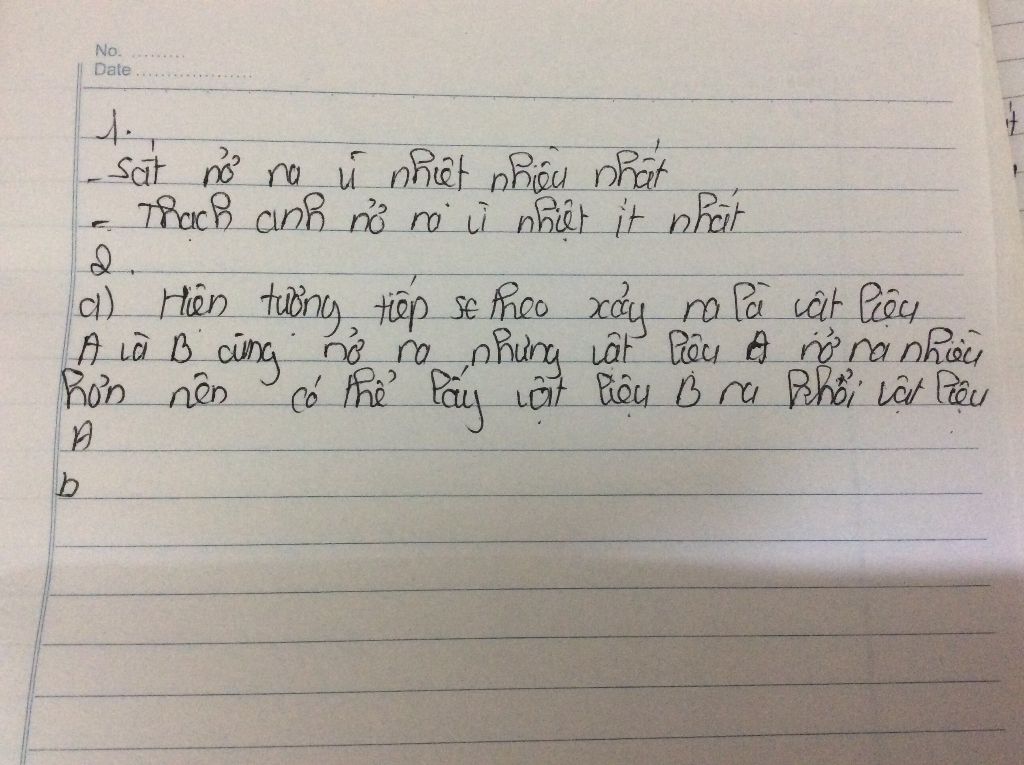 No. .........
Date ....................
1.
- Sắt nở ra vì nhiệt nhiều nhất
- Thạch anh nở ra vì nhiệt ít nhất
2.
a) Hiện tượng tiếp se theo xảy ra là vật liệu
A và B cũng nở ra nhưng vật liệu A nở ra nhiều
hơn nên có thể lấy vật liệu B ra khỏi vật liệu
A
b